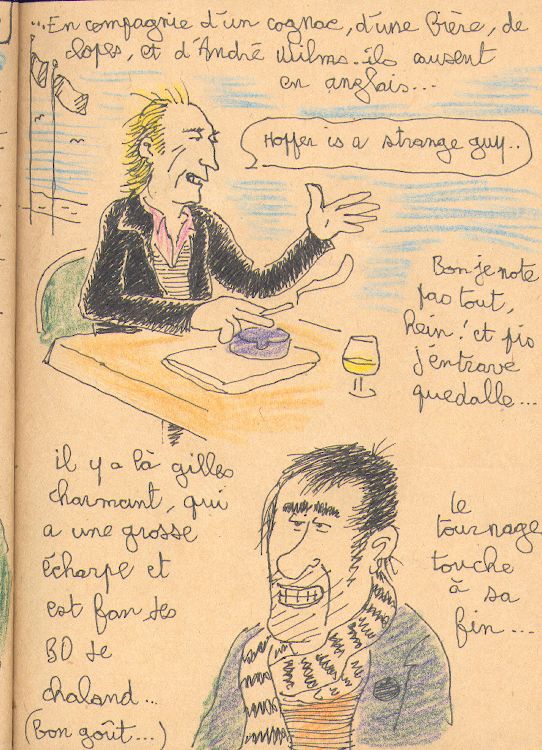 ...En compagnie d'un cognac, d'une bière, de
clopes, et d'André Wilms.. ils causent
en anglais...
Hoffer is a strange guy..
Bon je note
pas tout,
hein! et pis
j'entrave
quedalle...
il y a là gilles
charmant, qui
a une grosse
écharpe et
est fan des
BD de
chaland..
(bon goût...)
le
tournage
touche
à sa
fin...